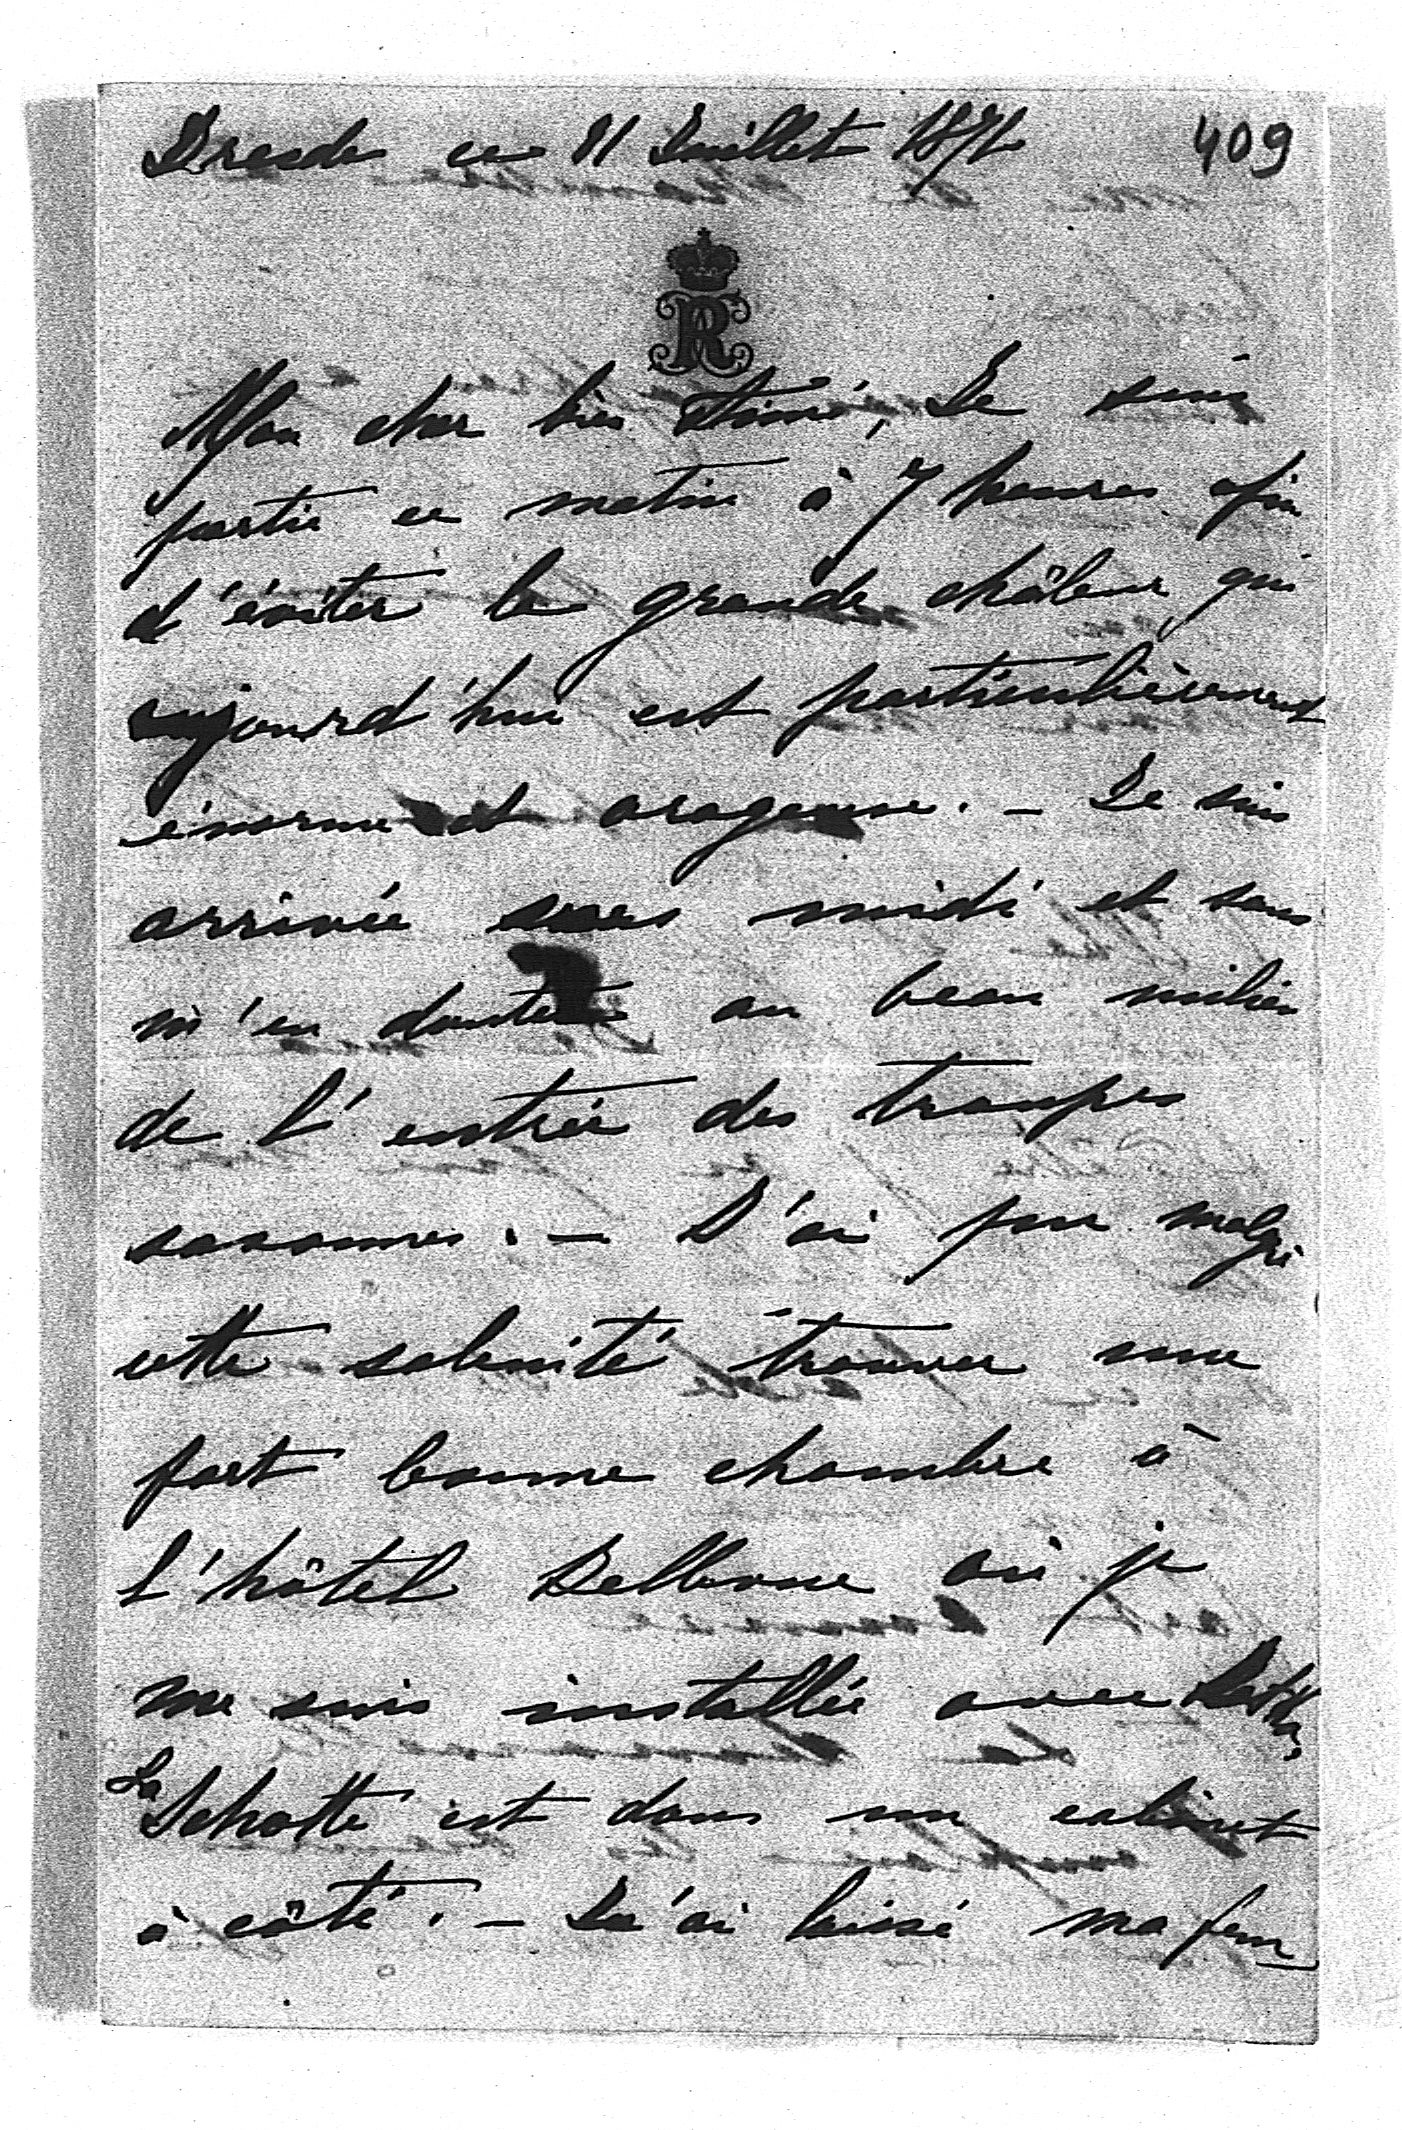 Dresde ce 11 Juillet 1871
409
R
Mon cher bien Aimé, Je suis
partie ce matin à 7 heures afin
d'éviter la grande châleur qui
aujourd'hui est particulièrement
énorme et orageuse. — Je suis
arrivée vers midi et sans
m'en douter au beau milieu
de l'entrée des troupes
saxonnes. — J'ai pu malgré
cette solenité trouver une
fort bonne chambre à
l'hôtel Bellevue où je
me suis installée avec
La Schotte est dans un cabinet
à côté. — J'ai laissé ma fem